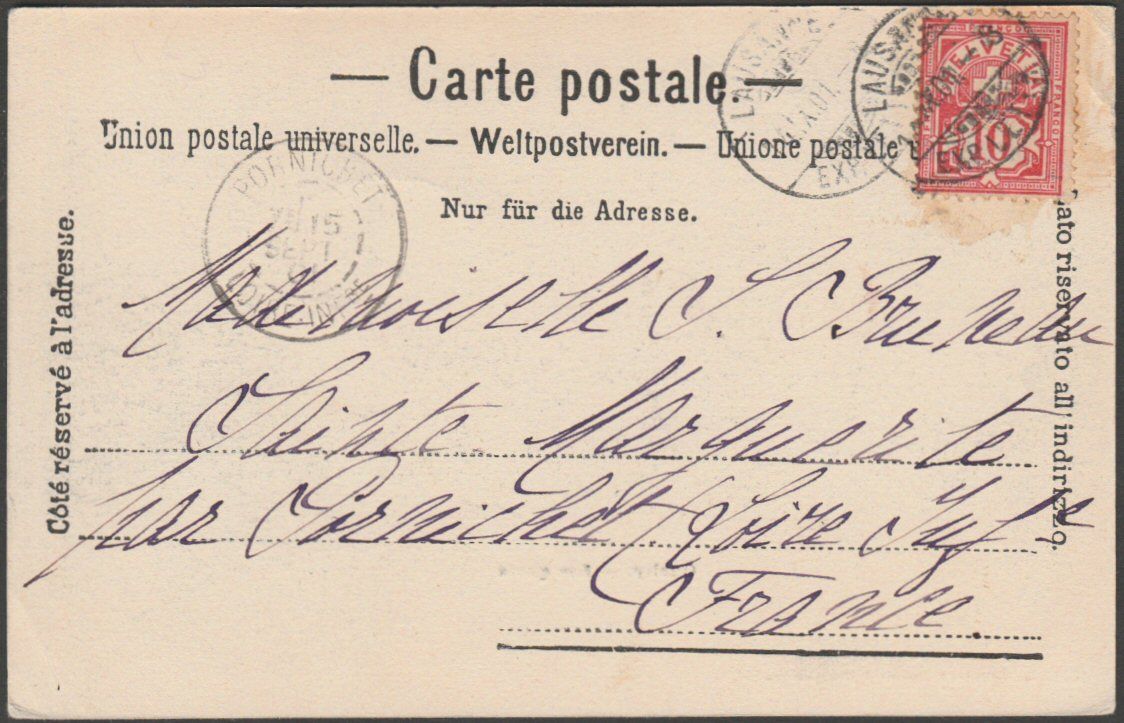 — Carte postale. —
Union postale universelle. — Weltpostverein. — Unione postale
Nur für die Adresse.
Côté réservé à l'adresse.
riservato all'indirizzo.
LAUSANNE
EXP.
LAUSANNE
EXP. L.
FRANCO
HELVETIA
10
PORNICHET
15
SEPT
LOIRE-INFRE
Mademoiselle S. Bruneau
Sainte Marguerite
par Pornichet Loire Infre
France.